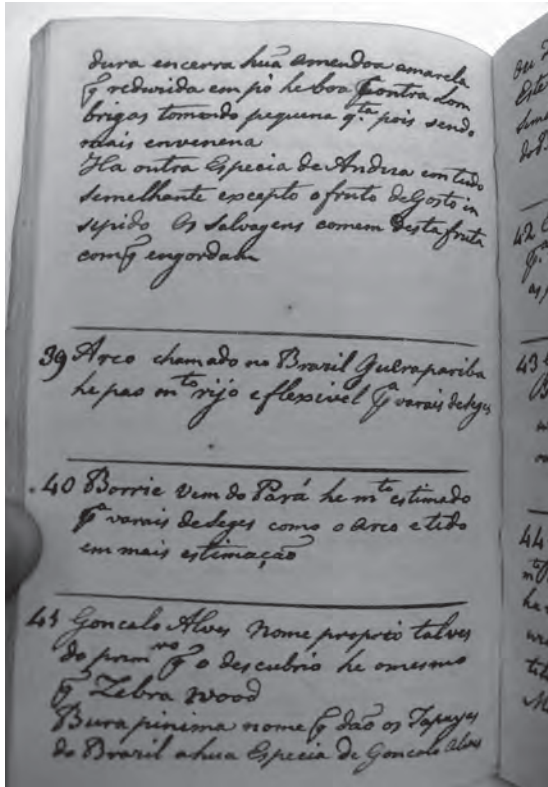 dura encerra huã amendoa amarela
q̃ reduzida em pò he boa contra lom
brigas tomando pequena q.ta pois sendo
mais envenena
Ha outra Especia de Andira em tudo
semelhante excepto o fruto de Gosto in
sipido Os Salvagens comem desta fruta
com q̃ engordam
39 Arco chamado no Brazil Guirapariba
he pao m.to rijo e flexivel p.a varais de seges
40 Borrie vem do Pará he m.to estimado
p.a varais de Seges como o Arco e tido
em mais estimação
41 Goncalo Alves nome proprio talves
do prim.ro q̃ o descubrio he o mesmo
q̃ Zebra wood
Burapinima nome q̃ dão os Tapuyas
do Brazil a hua Especia de Goncalo Alves
ou
Este
do
42
as
43
44
m.to
he